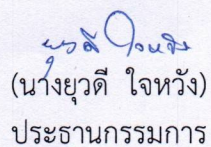 ยุวดี ใจหวัง
(นางยุวดี ใจหวัง)
ประธานกรรมการ